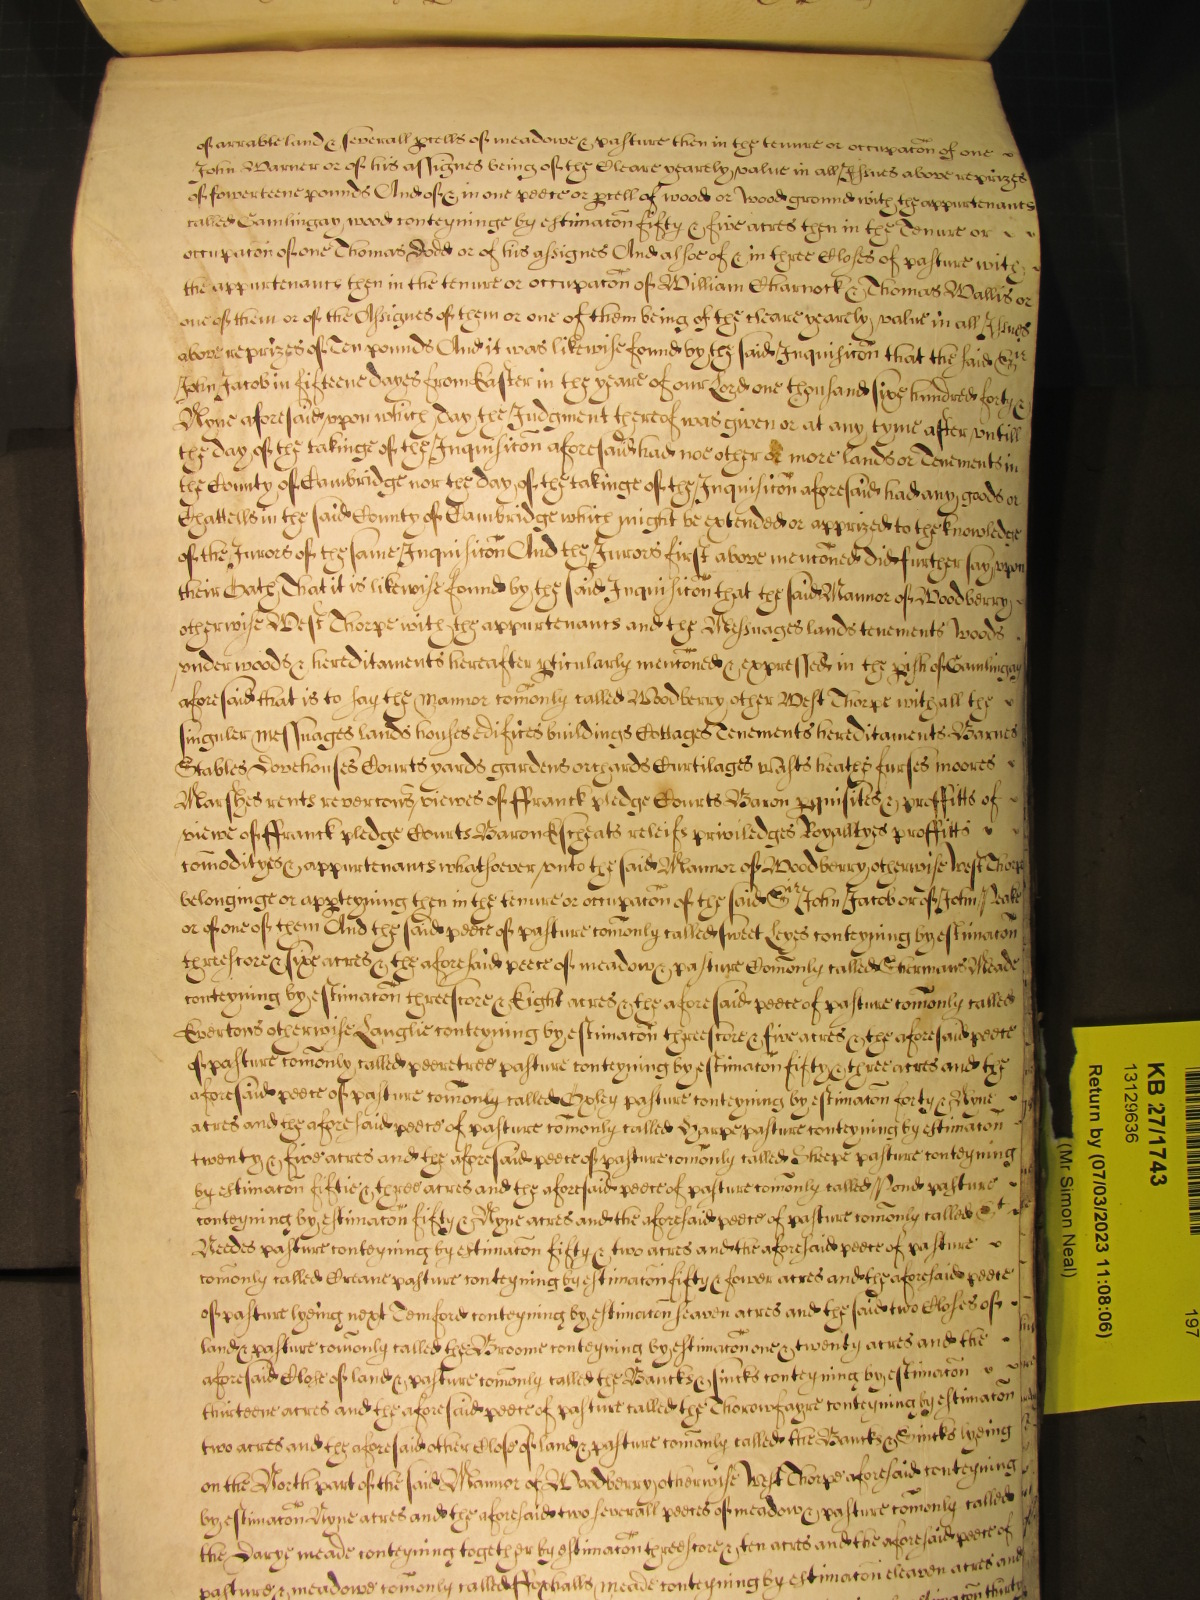 of arrable land & severall pcells of meadowe & pasture then in the tenure or occupacõn of one
John Warner or of his assignes being of the Cleare yearely value in all Issues above reprizes
of fowerteene pounds And of & in one peece or pcell of wood or wood ground with the appurtenants
called Gamlingay wood conteyninge by estimacõn fifty & five acres then in the Tenure or
occupacõn of one Thomas Dodd or of his assignes And alsoe of & in three Closes of pasture with
the appurtenants then in the tenure or occupacõn of William Charnock & Thomas Wallis or
one of them or of the Assignes of them or one of them being of the cleare yearely value in all Issues
above reprizes of Ten pounds And it was likewise found by the said Inquisicõn that the said Sir
John Jacob in fifteene dayes from Easter in the yeare of our Lord one thousand sixe hundred forty &
Nyne aforesaid upon which day the Judgment thereof was given or at any tyme after untill
the day of the takinge of the Inquisicõn aforesaid had noe other or more lands or Tenements in
the County of Cambridge nor the day of the takinge of the Inquisicõn aforesaid had any goods or
Chattells in the said County of Cambridge which might be extended or apprized to the knowledge
of the Jurors of the same Inquisicõn And the Jurors first above mencõned did further say upon
their Oath That it is likewise found by the said Inquisicõn that the said Mannor of Woodberry
otherwise West Thorpe with the appurtenants and the Messuages lands tenements woods
underwoods & hereditaments hereafter pticularly mencõned & expressed in the pish of Gamlingay
aforesaid that is to say the Mannor comonly called Woodberry other West Thorpe with all the
singuler messuages lands houses edifices buildings Cottages Tenements hereditaments Barnes
Stables Dovehouses Courts yards gardens orchards Curtilages wasts heaths furses moores
Marshes rents revercons viewes of ffranck pledge Courts Baron pquisites & proffitts of
viewe of ffranck pledge Courts Baron Escheats releifs priviledges Royaltyes proffitts
comodityes & appurtenants whatsoever unto the said Mannor of Woodberry otherwise West Thorpe
belonginge or appteyning then in the tenure or occupacõn of the said Sir John Jacob or of John
or of one of them And the said peece of pasture comonly called Sweet Leyes conteyning by estimacõn
threescore & sixe acres & the aforesaid peece of meadow & pasture Comonly called Shermans Meade
conteyning by estimacõn threescore & Eight acres & the aforesaid peece of pasture comonly called
Evertons otherwise Langlie conteyning by estimacõn threescore & five acres & the aforesaid peece
of pasture comonly called peere tree pasture conteyning by estimacõn fifty & three acres and the
aforesaid peece of pasture comonly called pasture conteyning by estimacõn forty & Nyne
acres and the aforesaid peece of pasture comonly called pasture conteyning by estimacõn
twenty & five acres and the aforesaid peece of pasture comonly called Sheepe pasture conteyning
by estimacõn fiftie & three acres and the aforesaid peece of pasture comonly called Pond pasture
conteyning by estimacõn fifty & Nyne acres and the aforesaid peece of pasture comonly called St
Needes pasture conteyning by estimacõn fifty & two acres and the aforesaid peece of pasture
comonly called Creane pasture conteyning by estimacõn fifty & fower acres and the aforesaid peece
of pasture lyeing next Temsford conteyning by estimacõn seaven acres and the said two Closes of
land & pasture comonly called the Broome conteyning by estimacõn one & twenty acres and the
aforesaid Close of land & pasture comonly called the Bancks & sincks conteyning by estimacõn
thirteene acres and the aforesaid peece of pasture called the Thorowfayre conteyning by estimacõn
two acres and the aforesaid other Close of land & pasture comonly called the Bancks & Sincks lyeing
on the North part of the said Mannor of Woodberry otherwise West Thorpe aforesaid conteyning
by estimacõn Nyne acres and the aforesaid two severall peeces of meadow & pasture comonly called
the Darye meade conteyning together by estimacõn threescore & ten acres and the aforesaid peece of
pasture & meadowe comonly called ffoxballs meade conteyning by estimacõn eleaven acres and
estimacõn thirty
KB 27/1743
13129636
Return by (07/03/2023 11:08:06)
(Mr Simon Neal)
197